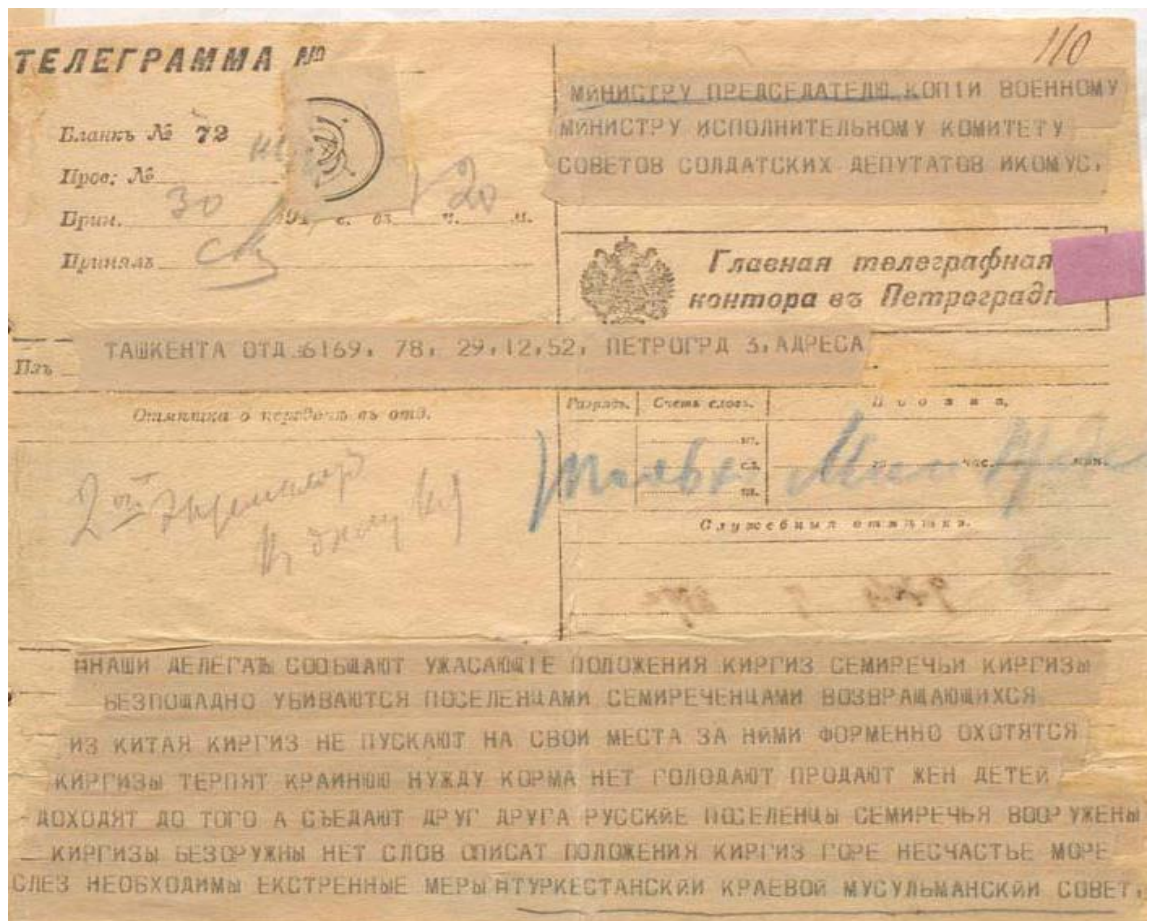 ТЕЛЕГРАММА №
110
МИНИСТРУ ПРЕДСЕДАТЕЛЮ КОПІИ ВОЕННОМУ
МИНИСТРУ ИСПОЛНИТЕЛЬНОМУ КОМИТЕТУ
СОВЕТОВ СОЛДАТСКИХ ДЕПУТАТОВ ИКОМУС,
Бланкъ № 72
Пров: №
Прин. 30 191 г. въ ч. м. 20
Принялъ
Главная телеграфная
контора въ Петроградѣ
Изъ ТАШКЕНТА ОТД 6169, 78, 29,12,52, ПЕТРОГРД 3,АДРЕСА
Отмѣтка о передачѣ въ отд.
Разрядъ. Счетъ словъ. Подана.
сл. го час. мин.
2ой экземпляр
к
Служебныя отмѣтки.
НАШИ ДЕЛЕГАТЫ СООБЩАЮТ УЖАСАЮЩІЕ ПОЛОЖЕНИЯ КИРГИЗ СЕМИРЕЧЬИ КИРГИЗЫ
БЕЗПОЩАДНО УБИВАЮТСЯ ПОСЕЛЕНЦАМИ СЕМИРЕЧЕНЦАМИ ВОЗВРАЩАЮЩИХСЯ
ИЗ КИТАЯ КИРГИЗ НЕ ПУСКАЮТ НА СВОИ МЕСТА ЗА НЙМИ ФОРМЕННО ОХОТЯТСЯ
КИРГИЗЫ ТЕРПЯТ КРАИНЮЮ НУЖДУ КОРМА НЕТ ГОЛОДАЮТ ПРОДАЮТ ЖЕН ДЕТЕЙ
ДОХОДЯТ ДО ТОГО А СЪЕДАЮТ ДРУГ ДРУГА РУССКЙЕ ПОСЕЛЕНЦЫ СЕМИРЕЧЬЯ ВООРУЖЕНЫ
КИРГИЗЫ БЕЗОРУЖНЫ НЕТ СЛОВ ОПИСАТ ПОЛОЖЕНИЯ КИРГИЗ ГОРЕ НЕСЧАСТЬЕ МОРЕ
СЛЕЗ НЕОБХОДИМЫ ЕКСТРЕННЫЕ МЕРЫ ТУРКЕСТАНСКЙИ КРАЕВОЙ МУСУЛЬМАНСКЙИ СОВЕТ,